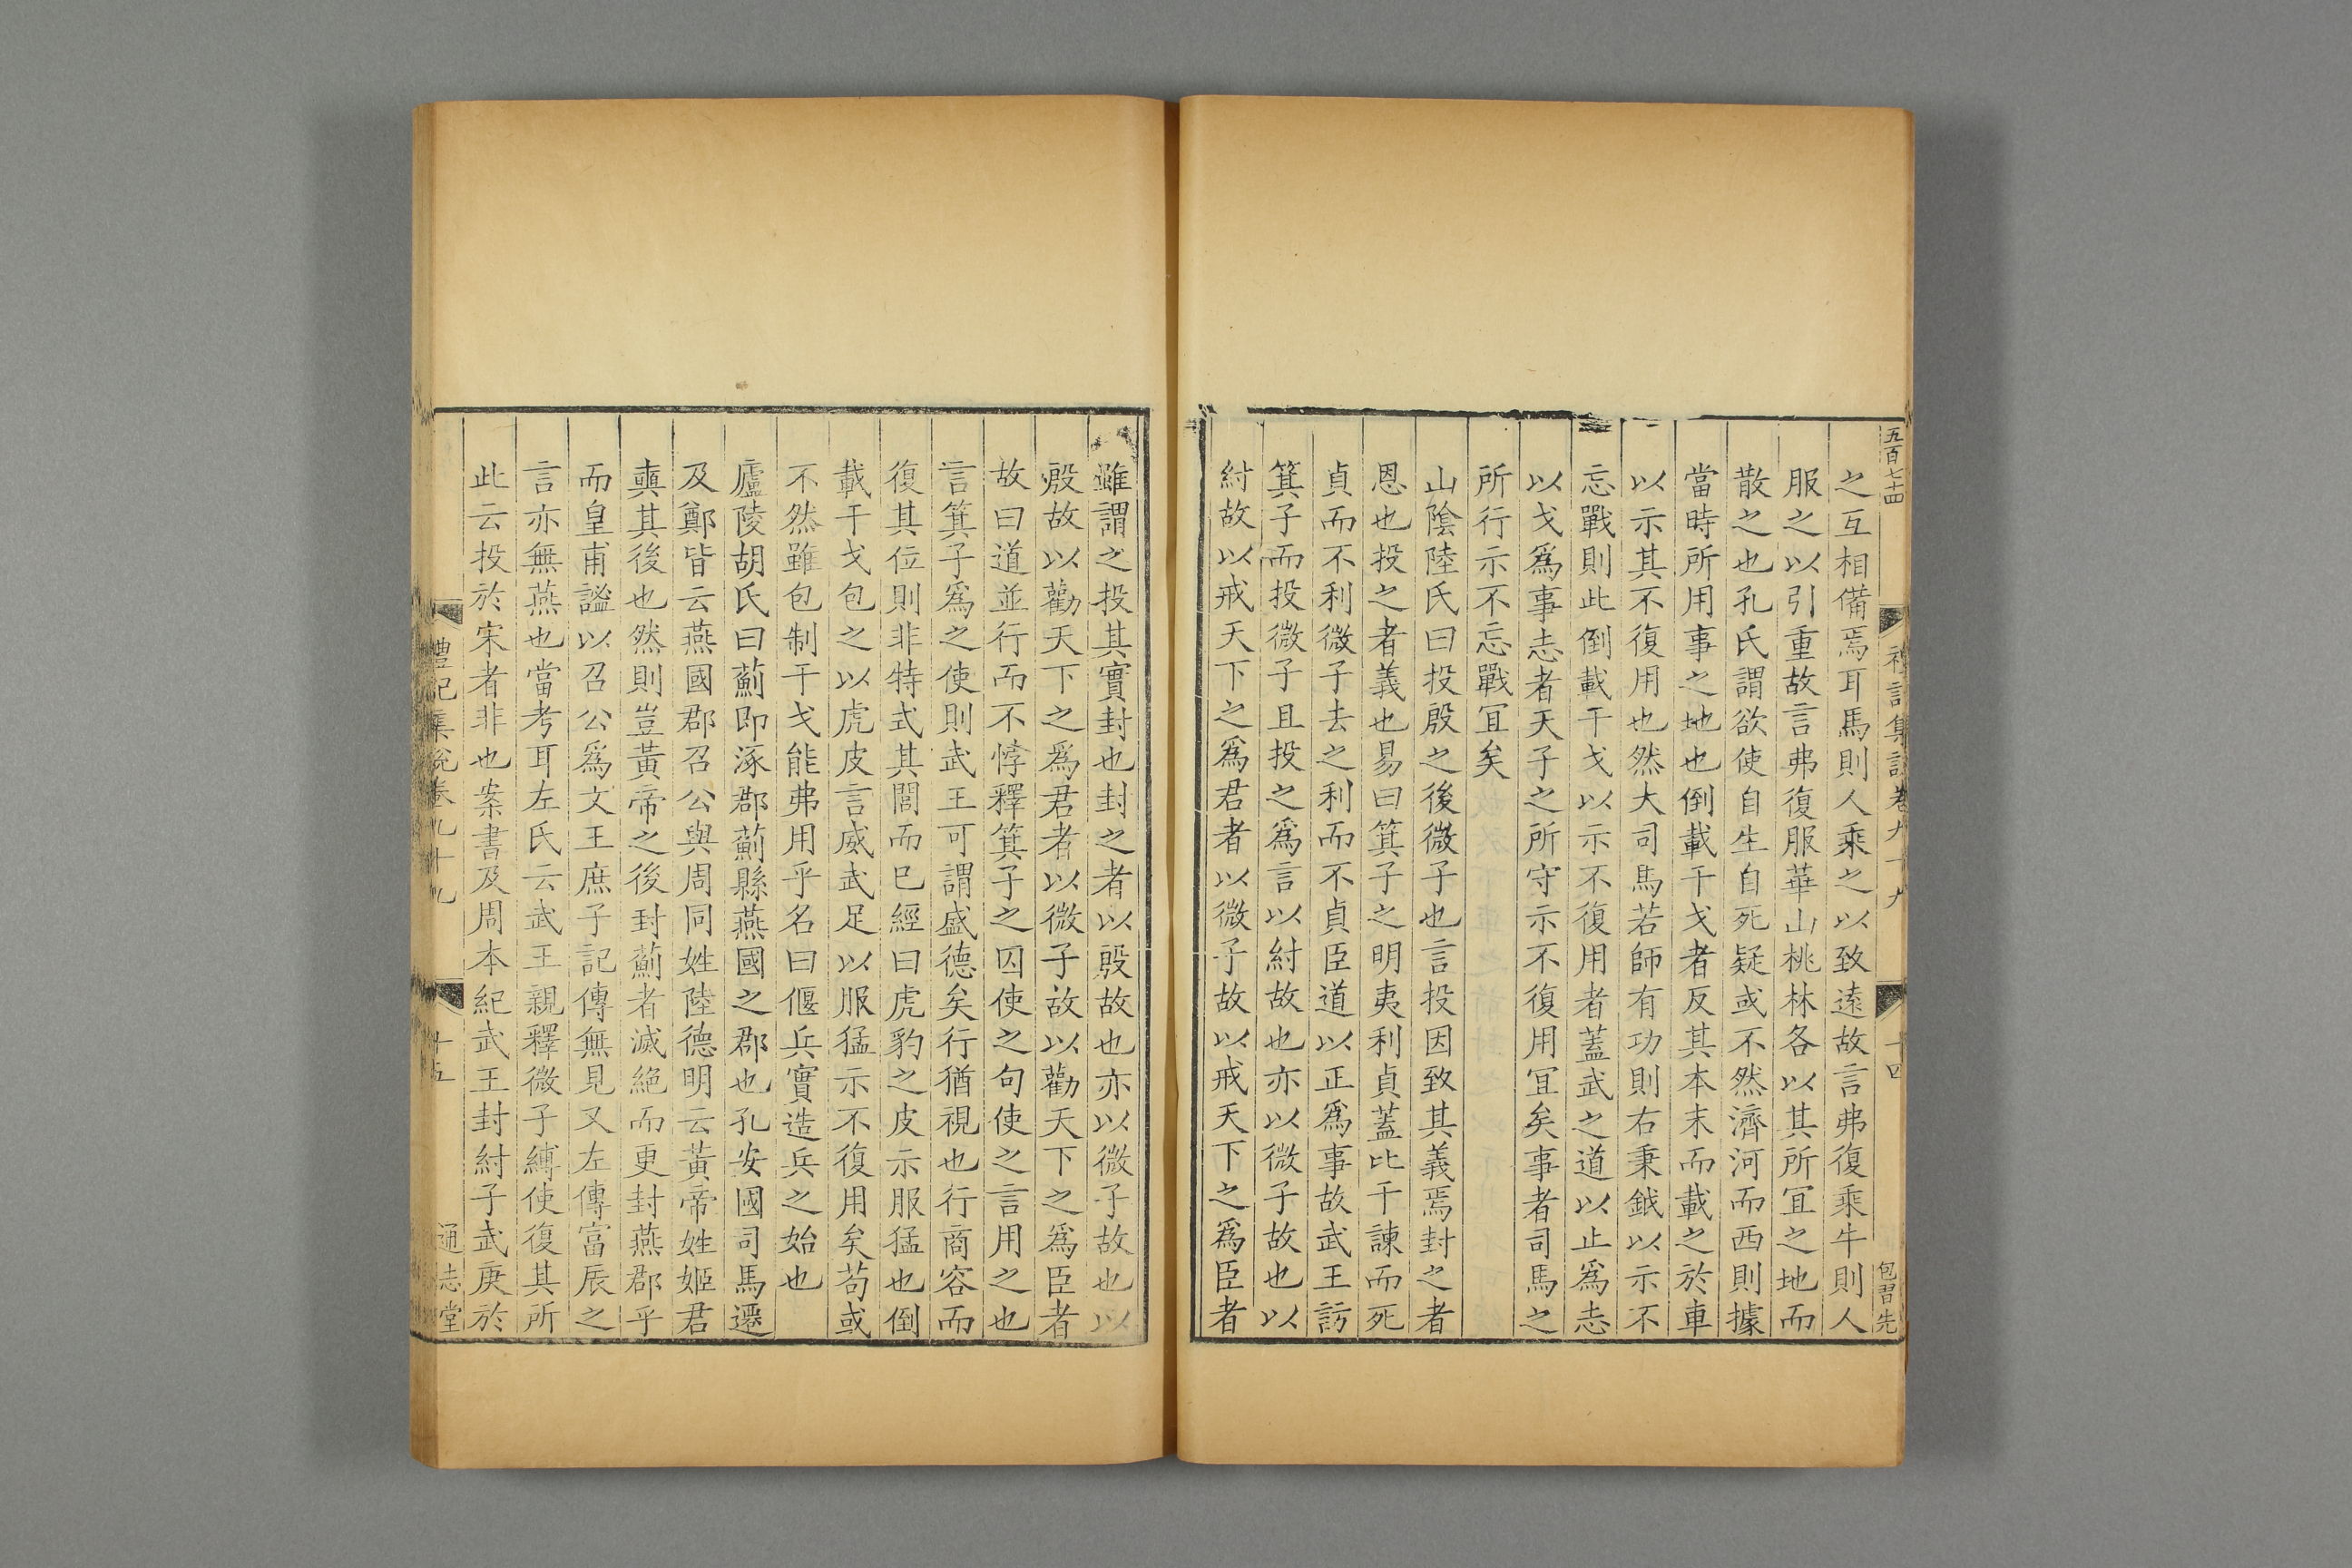 五百七十四
禮記集說卷九十九
十四
包習先
之互相備焉耳馬則人乘之以致遠故言弗復乘牛則人
服之以引重故言弗復服華山桃林各以其所宜之地而
散之也孔氏謂欲使自生自死疑或不然濟河而西則據
當時所用事之地也倒載干戈者反其本末而載之於車
以示其不復用也然大司馬若師有功則右秉鉞以示不
忘戰則此倒載干戈以示不復用者蓋武之道以止爲志
以戈爲事志者天子之所守示不復用宜矣事者司馬之
所行示不忘戰宜矣
山陰陸氏曰投殷之後微子也言投因致其義焉封之者
恩也投之者義也易曰箕子之明夷利貞蓋比干諫而死
貞而不利微子去之利而不貞臣道以正爲事故武王訪
箕子而投微子且投之爲言以紂故也亦以微子故也以
紂故以戒天下之爲君者以微子故以戒天下之爲臣者
雖謂之投其實封也封之者以殷故也亦以微子故也以
殷故以勸天下之爲君者以微子故以勸天下之爲臣者
故曰道並行而不悖釋箕子之囚使之句使之言用之也
言箕子爲之使則武王可謂盛德矣行猶視也行商容而
復其位則非特式其閭而已經曰虎豹之皮示服猛也倒
載干戈包之以虎皮言威武足以服猛示不復用矣苟或
不然雖包制干戈能弗用乎名曰偃兵實造兵之始也
廬陵胡氏曰薊即涿郡薊縣燕國之郡也孔安國司馬遷
及鄭皆云燕國郡召公與周同姓陸德明云黃帝姓姬君
奭其後也然則豈黃帝之後封薊者滅絕而更封燕郡乎
而皇甫謐以召公爲文王庶子記傳無見又左傳富辰之
言亦無燕也當考耳左氏云武王親釋微子縛使復其所
此云投於宋者非也案書及周本紀武王封紂子武庚於
禮記集說卷九十九
十五
通志堂